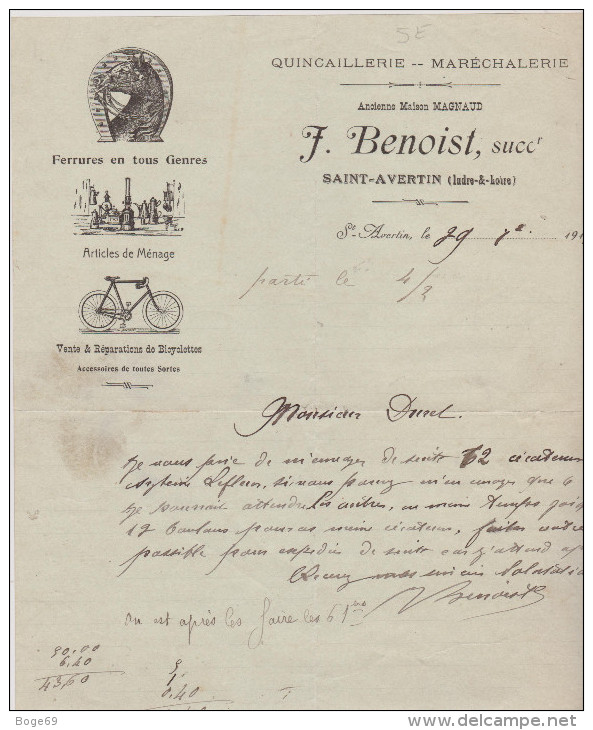 5E
QUINCAILLERIE -- MARÉCHALERIE
Ancienne Maison MAGNAUD
J. Benoist, succr
SAINT-AVERTIN (Indre-&-Loire)
St-Avertin, le 29 191
parti le 4/2
Ferrures en tous Genres
Articles de Ménage
Vente & Réparations de Bicyclettes
Accessoires de toutes Sortes
Monsieur Durel.
Je vous prie de m'envoyer de suite 12
si vous pouvez m'en envoyer que 6
je pourrait attendre les autres, en même temps
12 boulons pour faites votre
possible pour expédier de suite car j'attend
Recevez mes salutatio
Benoist
on est après les faire les 6
50.00
6.40
43.60
9
1
0.40
Boge69
www.delcampe.net